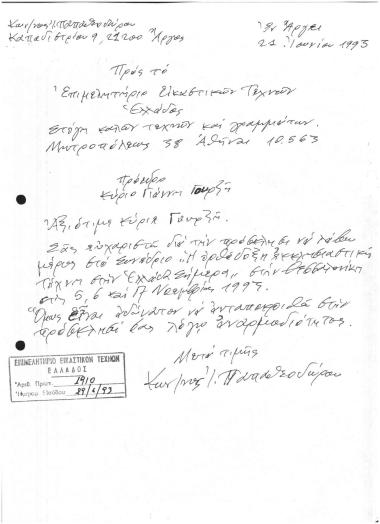 Κων/νος Ι. Παπαθεοδώρου
Καποδιστρίου 9, 21200 Άργος
Ἐν Ἄργει
21 Ἰουνίου 1993
Πρός τό
Ἐπιμελητήριο Εἰκαστικῶν Τεχνῶν
Ἑλλάδος
Στέγη καλῶν τεχνῶν καί γραμμάτων.
Μητροπόλεως 38 Ἀθῆναι 10.563
Πρόεδρο
Κύριο Γιάννη Γουρζῆ
Ἀξιότιμε Κύριε Γουρζῆ.
Σᾶς εὐχαριστῶ διά τήν πρόσκληση νά λάβω
μέρος στό Συνέδριο "Ἡ ὀρθόδοξη ἐκκλησιαστική
Τέχνη στήν Ἑλλάδα Σήμερα,, στήν Θεσσαλονίκη
στίς 5, 6 καί 7 Νοεμβρίου 1993.
Ὅμως εἶναι ἀδύνατον νά ἀνταποκριθῶ στήν
πρόσκλησή σας λόγῳ ἀναρμοδιότητος.
Μετά τιμῆς
Κων/νος Ι. Παπαθεοδώρου
ΕΠΙΜΕΛΗΤΗΡΙΟ ΕΙΚΑΣΤΙΚΩΝ ΤΕΧΝΩΝ
ΕΛΛΑΔΟΣ
Ἀριθ. Πρωτ. 1910
Ἡμερομ. Εἰσόδου 29/6/93